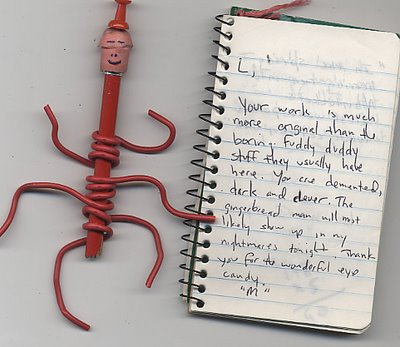 L,
Your work is much
more original than the
boring fuddy duddy
stuff they usually have
here. You are demented,
dark and clever. The
gingerbread man will most
likely show up in my
nightmares tonight. Thank
you for the wonderful eye
candy.
"M"